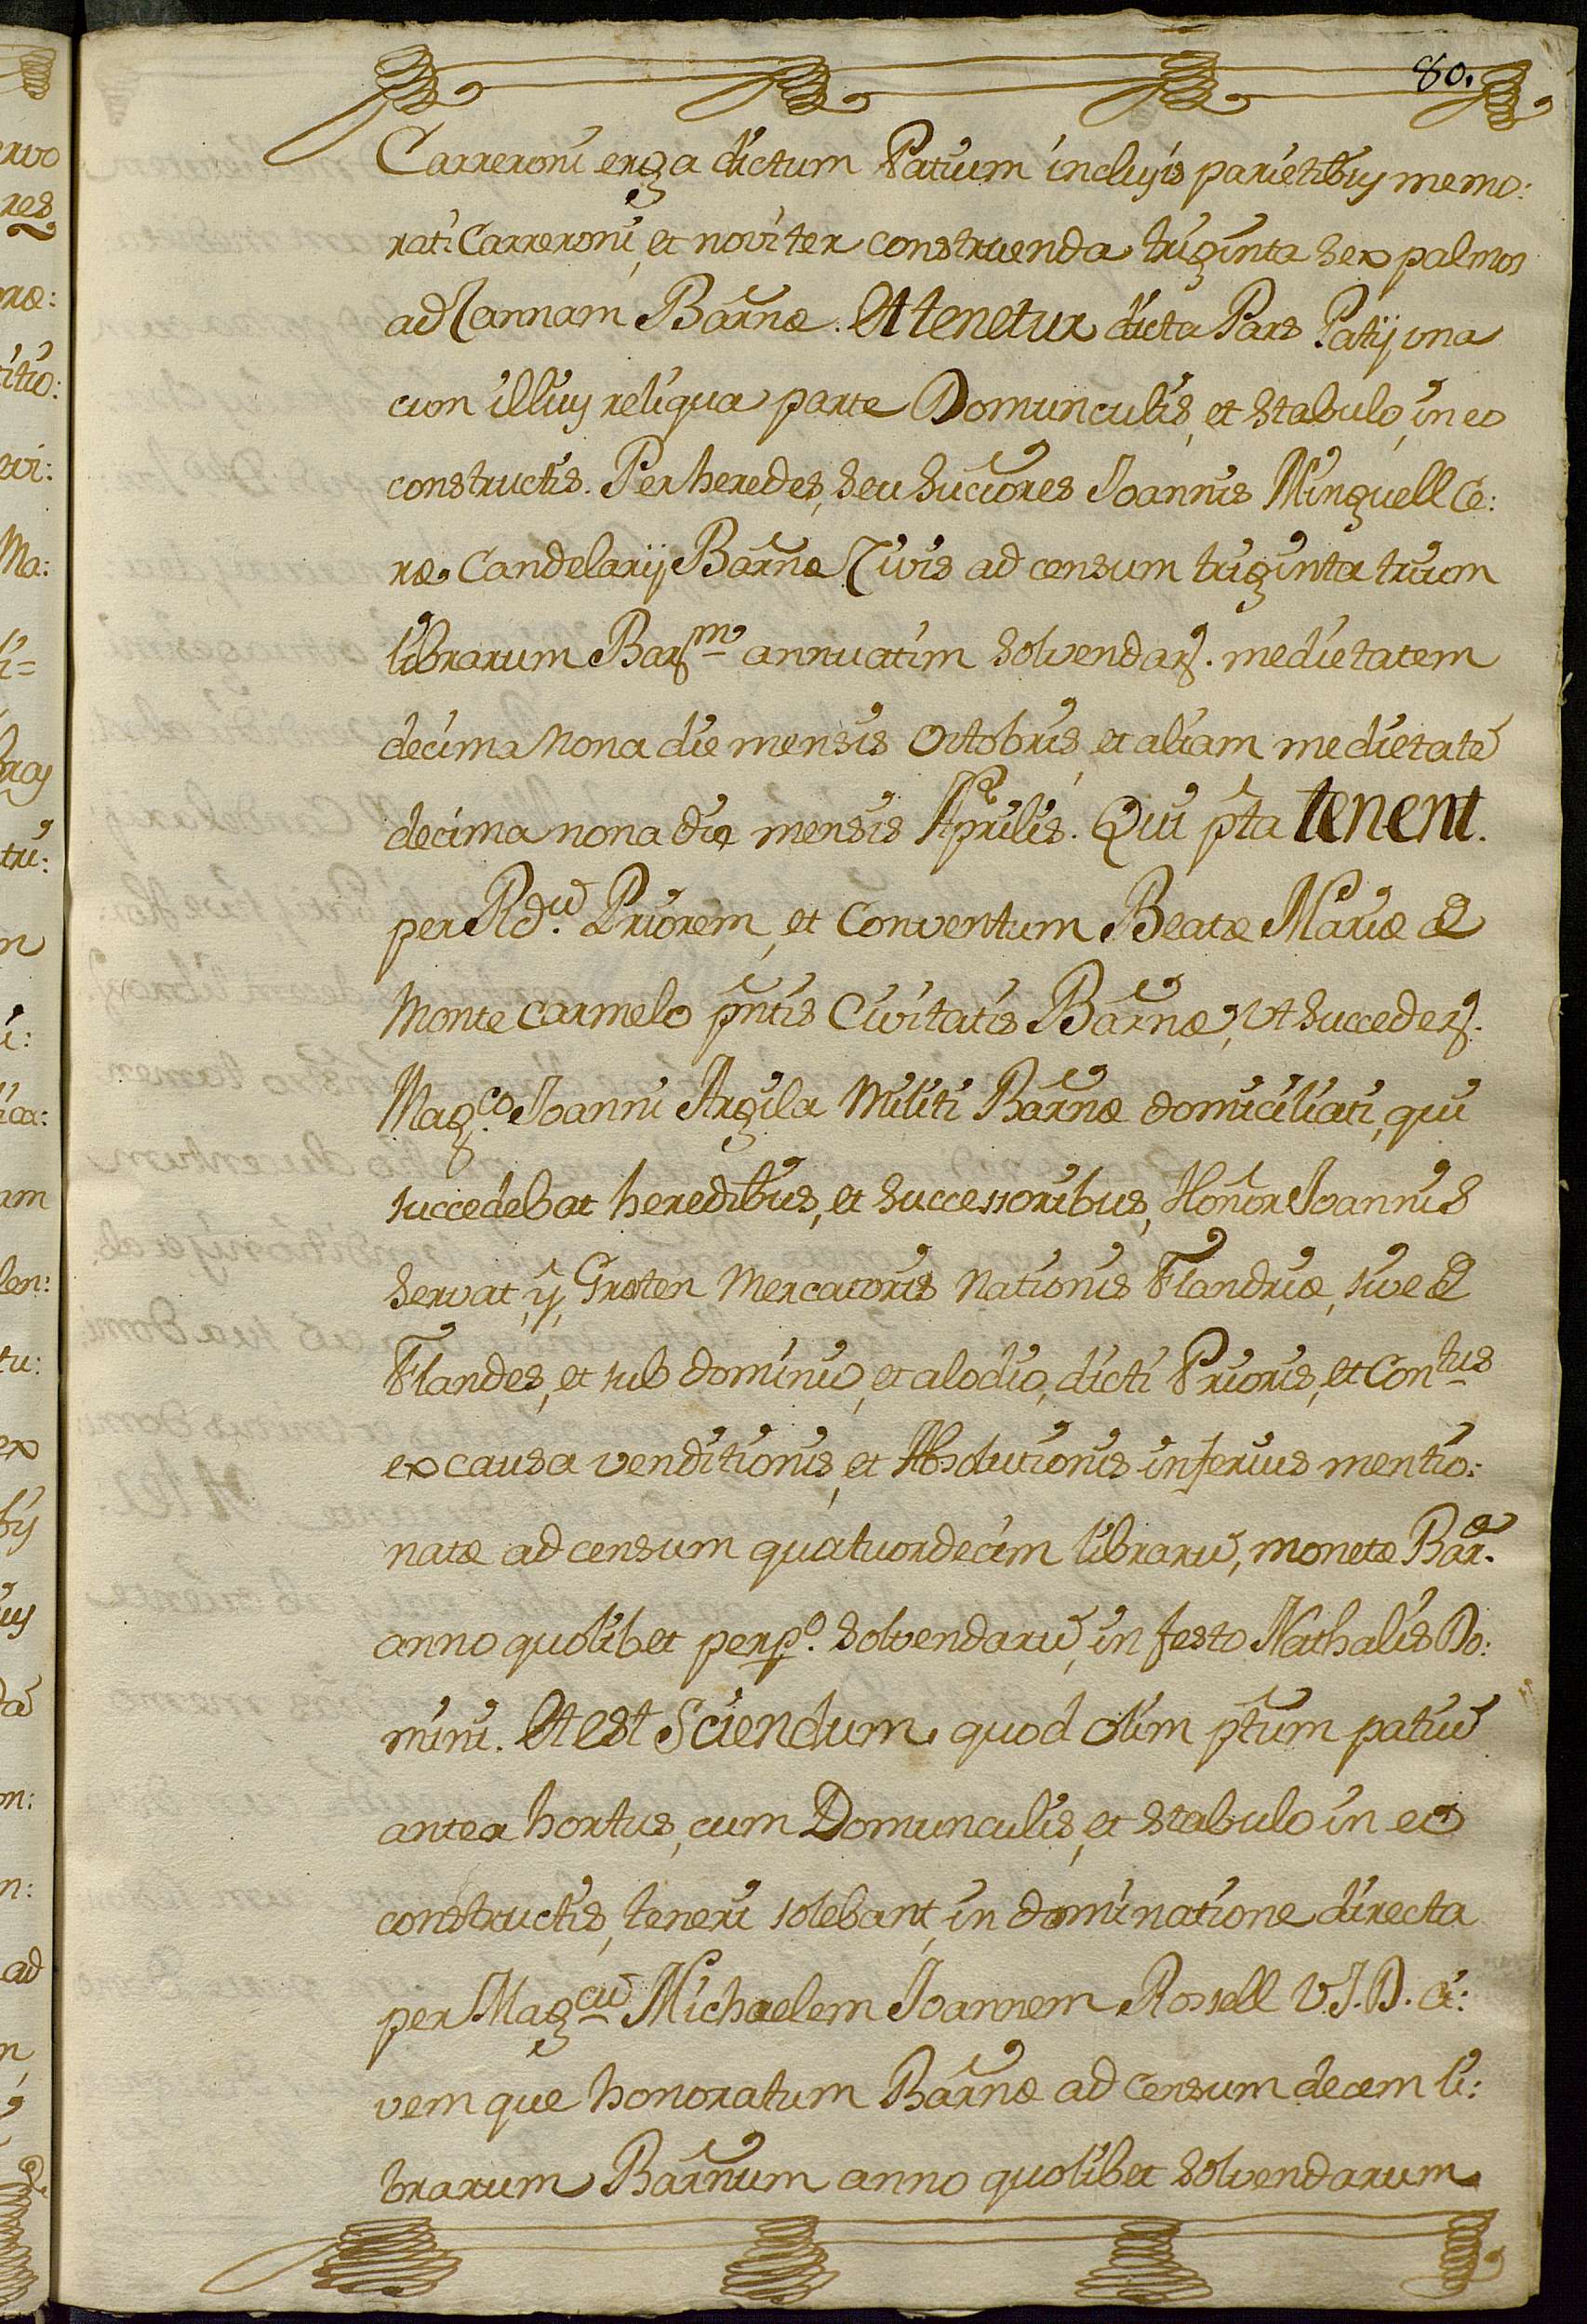 80.
Carreroni erga dictum Patium inclusis parietibus memo:
rati Carreroni, et noviter construenda triginta sex palmos
ad Cannam Barñæ. Et tenetur dicta Pars Patij, una
cum illius reliqua parte Domunculis, et stabulo, in eo
constructis. Per heredes, seu succiores Joannis Minguell Ce:
ræ Candelarij Barñæ Civis ad censum triginta trium
librarum Bar. annuatim solvendar. medietatem
decima nona die mensis Octobris, et aliam medietatē
decima nona die mensis Aprilis. Qui pta tenent.
per Rdũ. Priorem, et Conventum Beatæ Mariæ de
Monte Carmelo pñtis Civitatis Barñæ, Ut succeder.
Magco. Joanni Argila Militi Barñæ domiciliati, qui
succedebat heredibus, et successoribus, Honor Joannis
servat, ÿ, Groten Mercatoris Nationis Flandriæ, sive de
Flandes, et sub dominio, et alodio, dicti Prioris, et Contus
ex causa venditionis, et Absolutionis inferius mentio:
natæ ad censum quatuordecim librarũ, monetæ Bar.
anno quolibet perpo. solvendarũ, in festo Nathalis Do:
mini. Et est Sciendum, quod olim ptum patiũ
antea hortus, cum Domunculis, et stabulo in eo
constructis, teneri solebant, in dominatione directa
per Magcũ Michaelem Joannem Rossell U.J.D. ci:
vem que honoratum Barñæ ad censum decem li:
brarum Barñum anno quolibet solvendarum